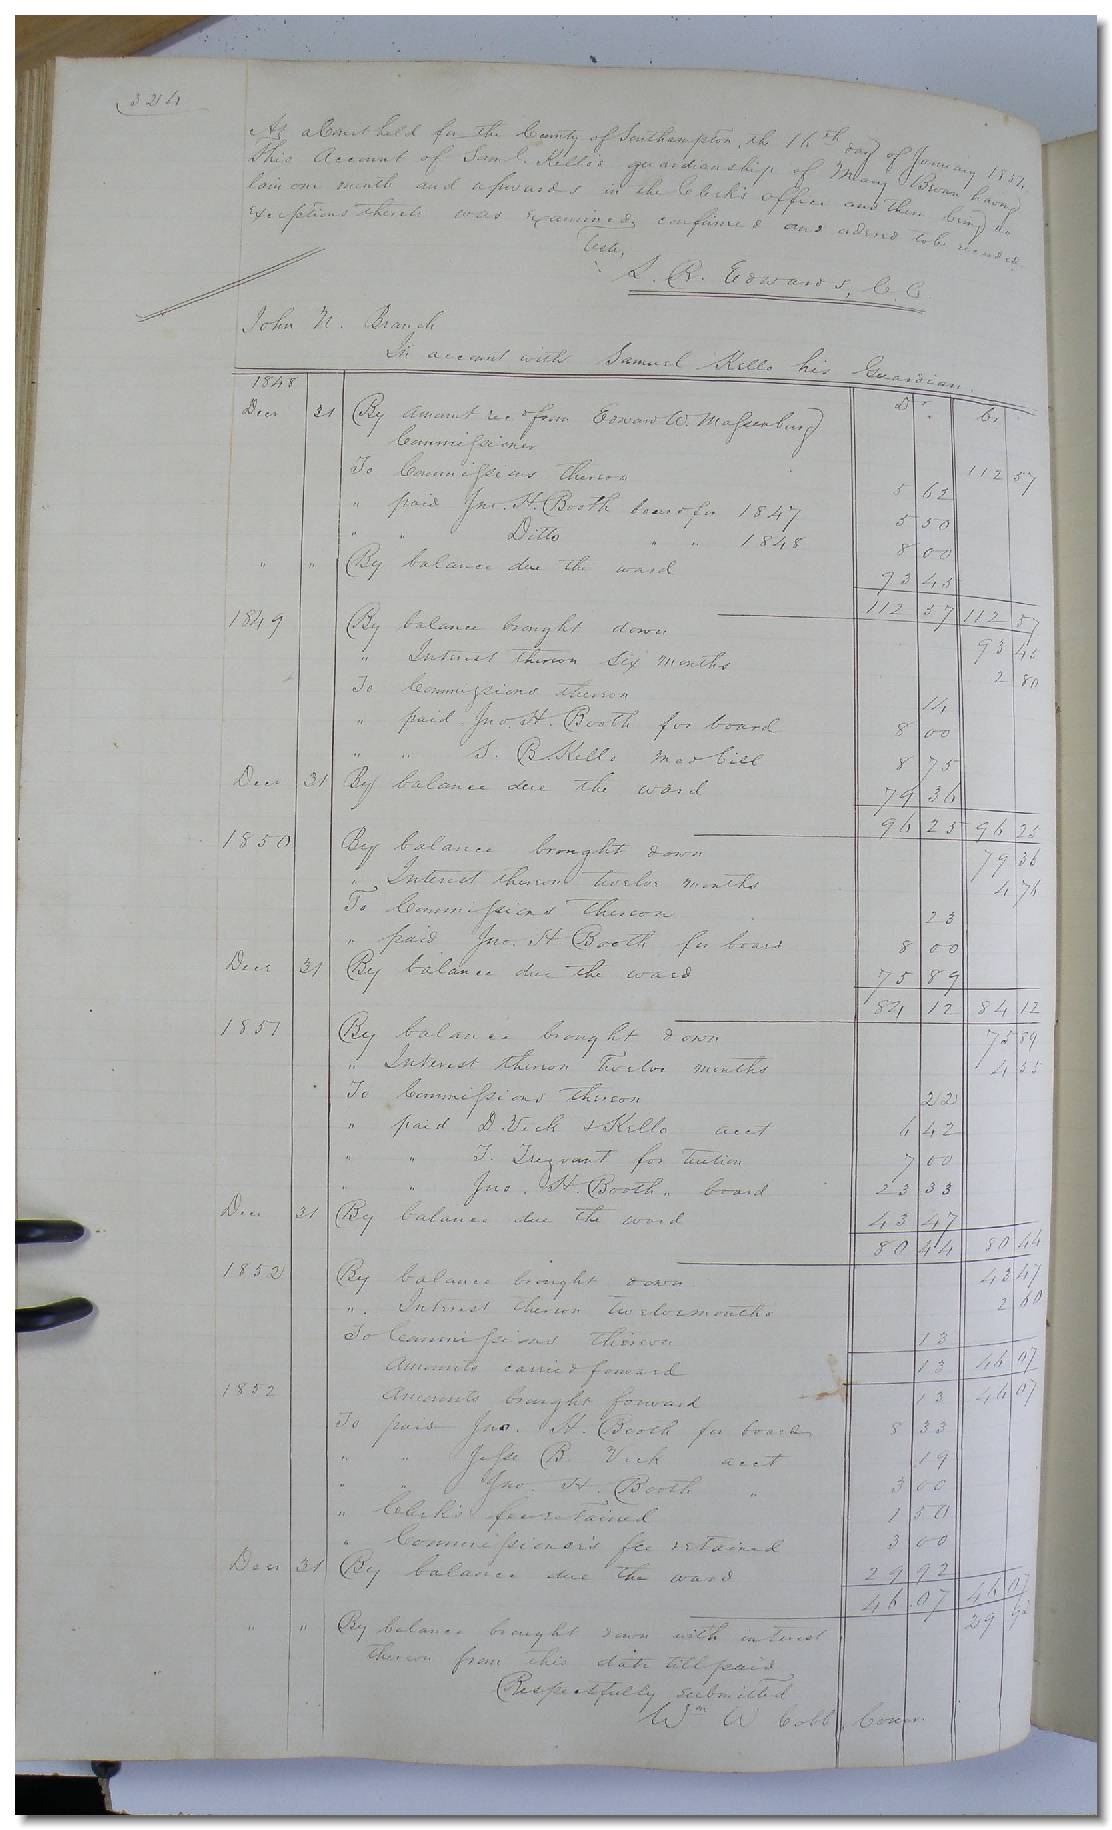 324
At a Court held for the County of Southampton the 16th day of January 185
This Account of Saml. Kello's guardianship of Mary Brown having
lain one month and upwards in the Clerk's office and there being no
exceptions thereto was examined, confirmed and ordered to be recorded.
Teste,
L. R. Edwards, C. C.
John N. Branch
In account with Samuel Kello his Guardian.
1848 Dr. Cr.
Decr 31 By amount recd from Edward W. Massenburg
Commissioner 112 57
To Commissions thereon 5 62
" paid Jno. H. Booth board for 1847 5 50
" " Ditto " " 1848 8 00
" " By balance due the ward 93 45
112 57 112 57
1849 By balance brought down 93 45
" Interest thereon six months 2 80
To Commissions thereon 14
" paid Jno. H. Booth for board 8 00
" " S. B. Kello Med bill 8 75
Decr 31 By balance due the ward 79 36
96 25 96 25
1850 By balance brought down 79 36
" Interest thereon twelve months 4 76
To Commissions thereon 23
" paid Jno. H. Booth for board 8 00
Decr 31 By balance due the ward 75 89
84 12 84 12
1851 By balance brought down 75 89
" Interest thereon twelve months 4 55
To Commissions thereon 22
" paid D. Vick & Kello acct 6 42
" " T. Trezvant for tuition 7 00
" " Jno. H. Booth " board 23 33
Decr 31 By balance due the ward 43 47
80 44 80 44
1852 By balance brought down 43 47
" Interest thereon twelve months 2 60
To Commissions thereon 13
Amounts carried forward 13 46 07
1852 Amounts brought forward 13 46 07
To paid Jno. H. Booth for board 8 33
" " Jesse B. Vick acct 19
" " Jno. H. Booth " 3 00
" Clerk's fee retained 1 50
" Commissioner's fee retained 3 00
Decr 31 By balance due the ward 29 92
46 07 46 07
" " By balance brought down with interest 29 92
thereon from this date till paid
Respectfully submitted
Wm W Cobb, Comr.